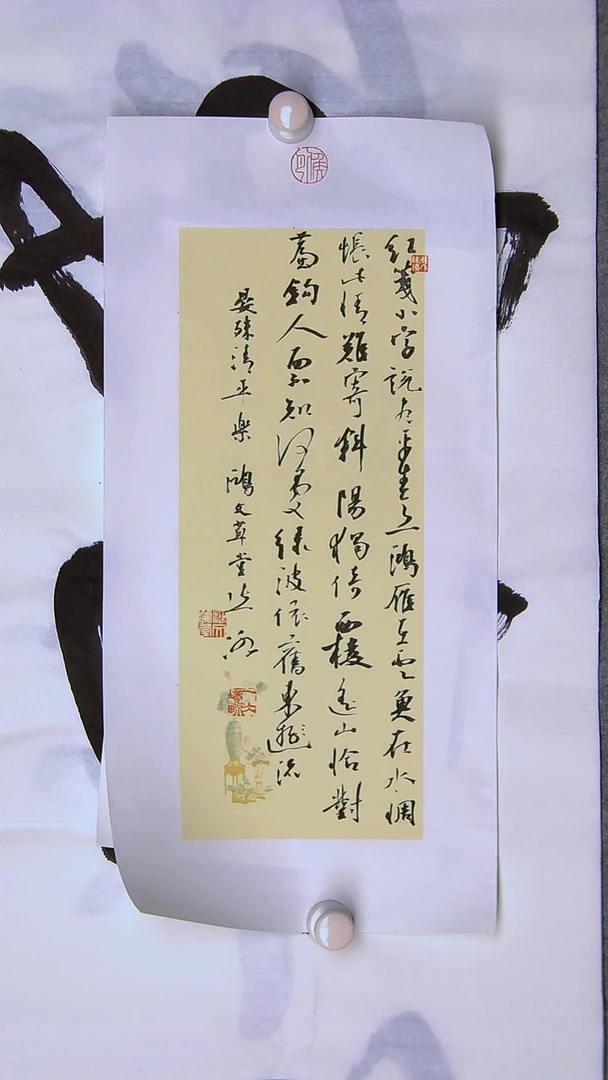 紅箋小字說尽平生意鴻雁在雲魚在水惆
悵此情難寄斜陽獨倚西樓遙山恰對
簾鉤人面不知何處綠波依舊東流
晏殊清平樂 鴻文草堂